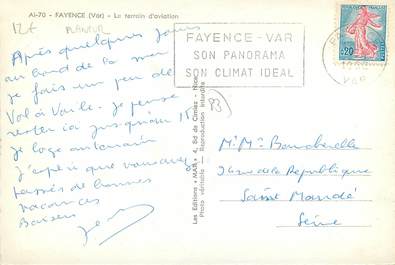 AI-70 - FAYENCE (Var) - Le terrain d'aviation
12f PLANEUR
Après quelques jours
au bord de la mer
je fais un peu de
Vol à Voile. Je pense
rester ici jusqu'au 15
Je loge au terrain
J'espère que vous avez
passés de bonnes
vacances
Baisers
FAYENCE - VAR
SON PANORAMA
SON CLIMAT IDEAL
0,20
VAR
83)
Les Editions "MAR" 4, Bd de Cimiez - Nice
Photo véritable - Reproduction interdite
Mr Me
rue de la Republique
Saint Mandé
Seine